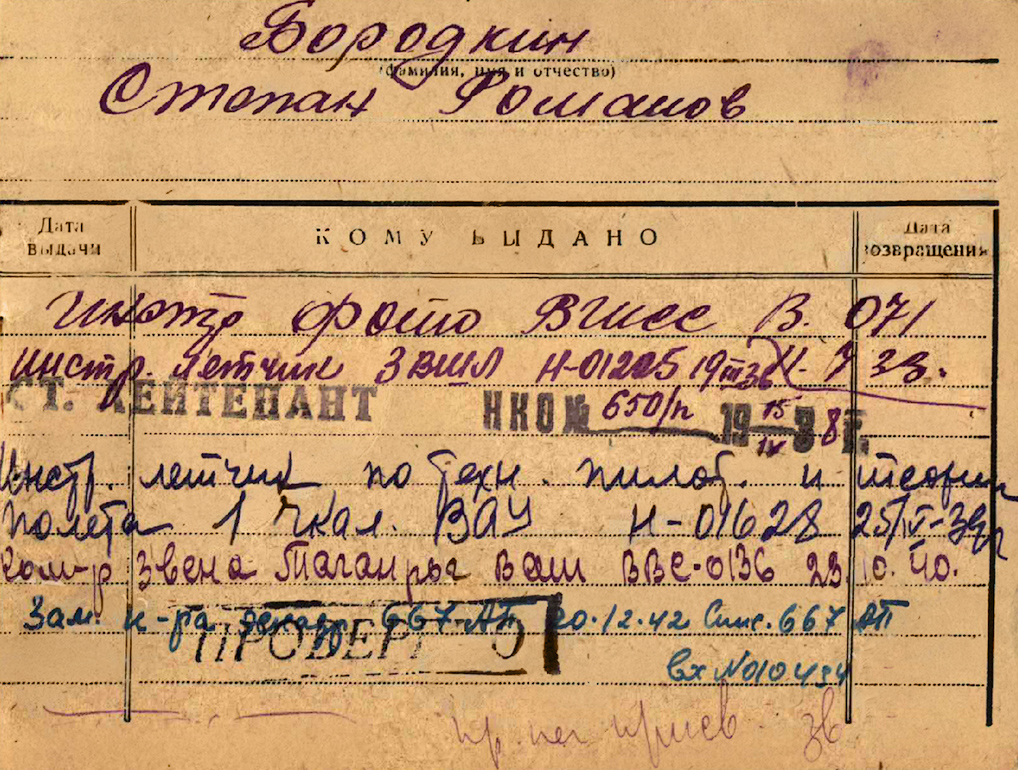 Бородкин
(фамилия, имя и отчество)
Степан Романов
Дата выдачи
КОМУ ВЫДАНО
Дата возвращения
фото В. 071
инстр. летчик ЗВШЛ Н-01205 19
СТ. ЛЕЙТЕНАНТ НКО № 650/п 19 15/IV 38 г.
Инстр. летчик по техн. пилот. и теории
полета 1 Чкал. ВАУ Н-01628 25/
Ком-р звена Таганрог ваш ВВС-0136 23.10.40.
Зам. к-ра 667-АП 20.12.42 Спис. 667 АП
ПРОВЕРЕНО
вх №010434